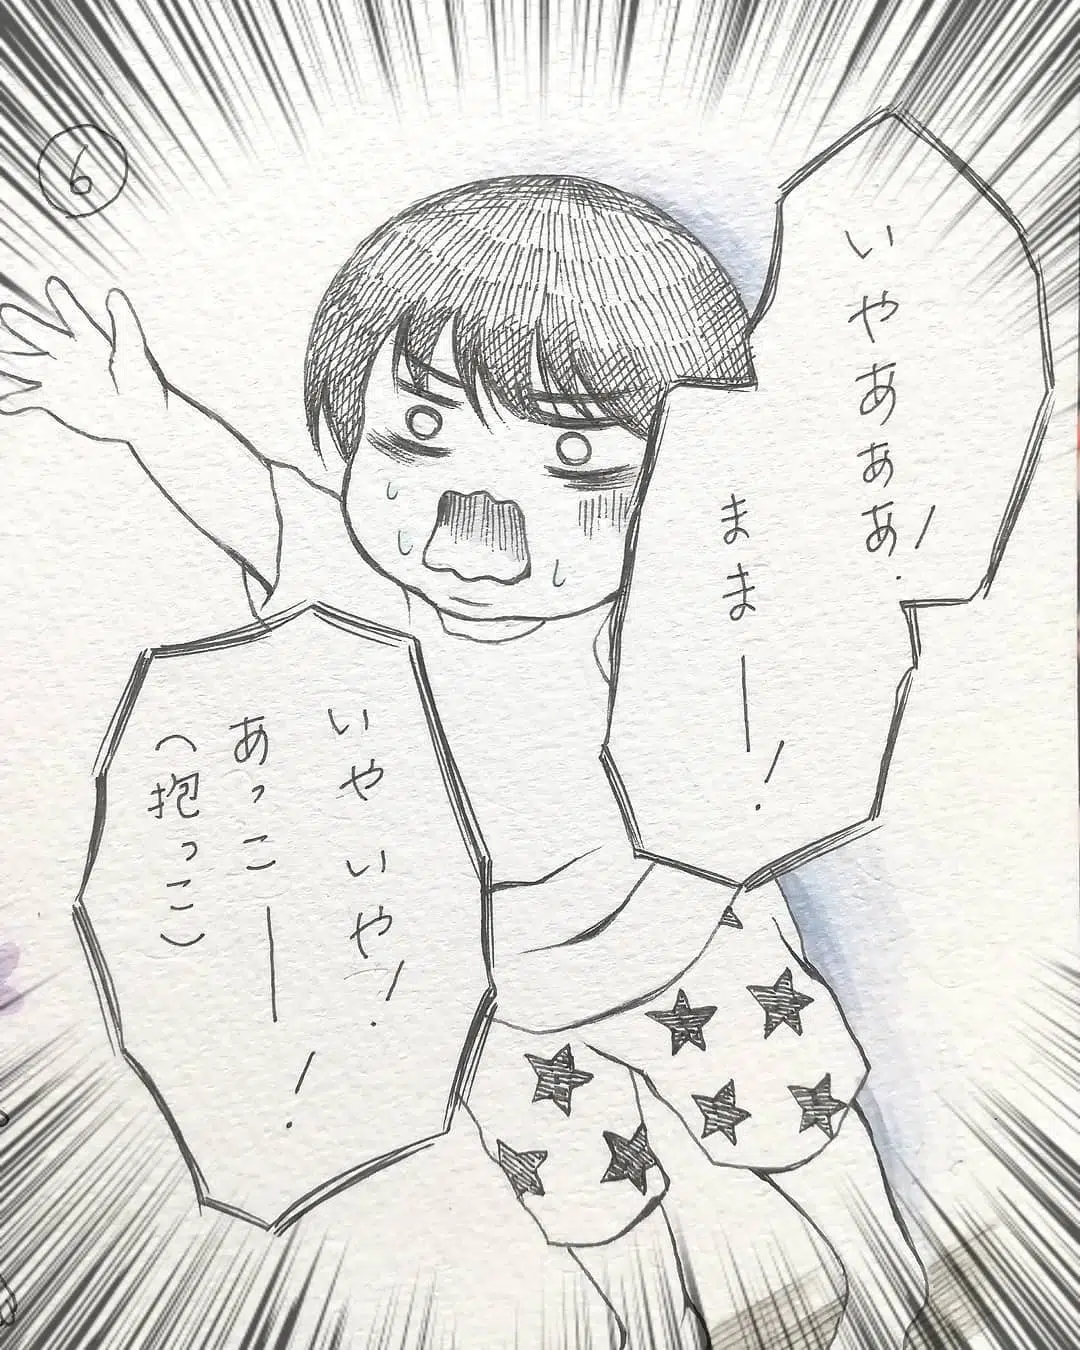 ⑥
いやあぁぁ!
ままー!
いやいや!
あっこー!
(抱っこ)